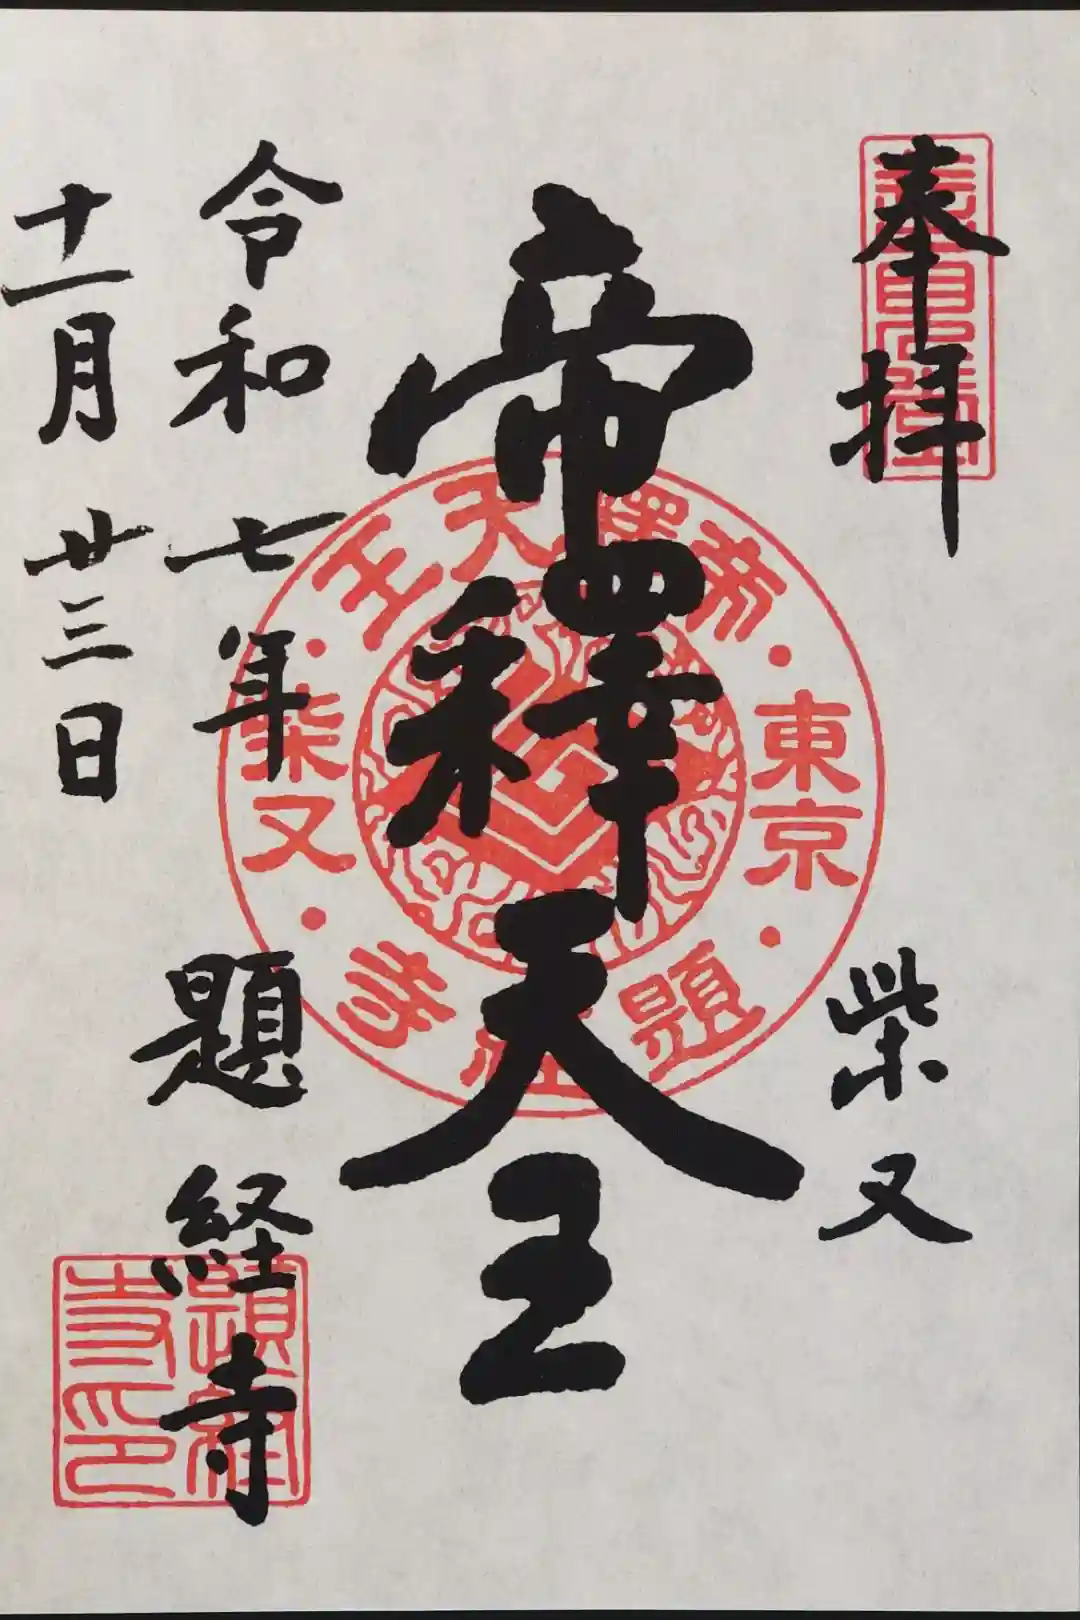 奉拝
柴又
帝釋天王
令和七年
十一月廿三日
題経寺
帝釋天王
東京
柴又
題経寺
題経寺印